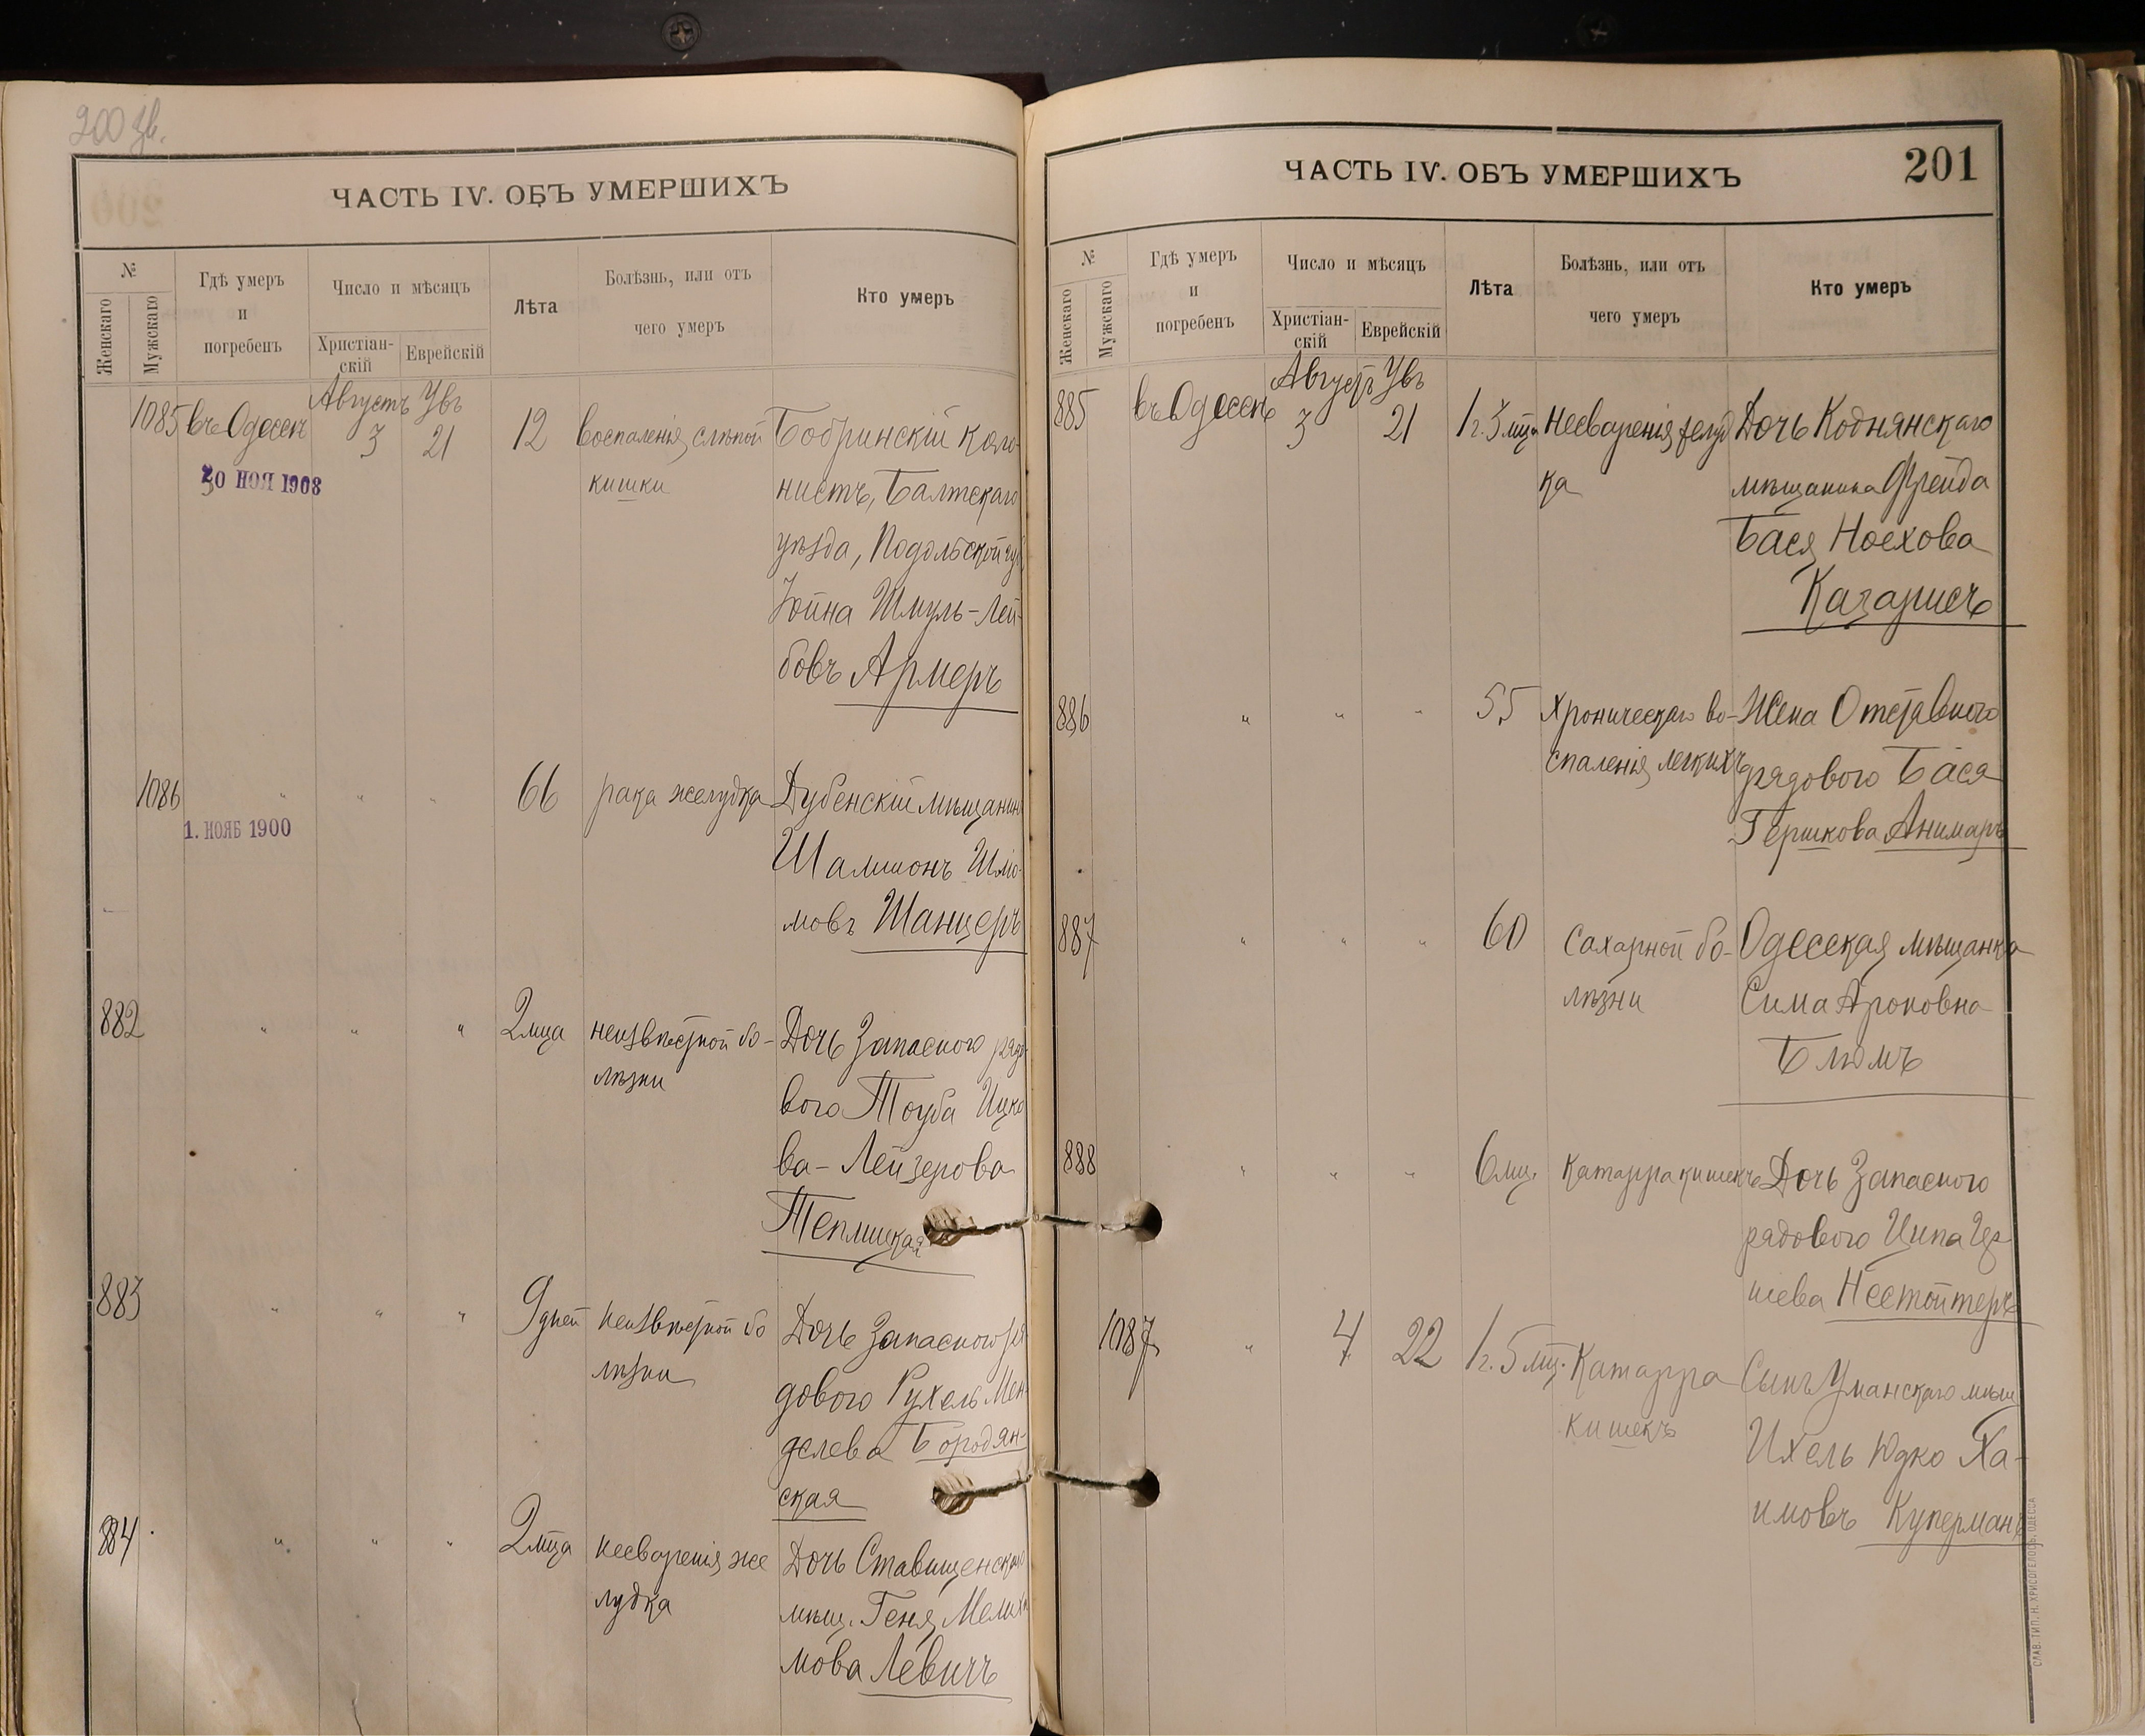 200 зв.
ЧАСТЬ IV. ОБЪ УМЕРШИХЪ
№
Женскаго
Мужскаго
Гдѣ умеръ
и
погребенъ
Число и мѣсяцъ
Христіан-
скій
Еврейскій
Лѣта
Болѣзнь, или отъ
чего умеръ
Кто умеръ
Августъ
1085 въ Одессѣ 3 21 12 воспаленія слѣпой
кишки
30 НОЯ 1908
Бобринскій коло-
нистъ, Балтскаго
уѣзда, Подольской губ
Іойна Шмуль-Лей-
бовъ Армеръ
1086 " " " 66 рака желудка
1. НОЯБ 1900
Дубенскій мѣщанинъ
Шамшонъ
мовъ Шанцеръ
882 " " " 2 мца неизвѣстной бо-
лѣзни
Дочь Запасного рядо
вого Тоуба Ицко
ва-Лейзерова
Теплицкая
883 " " " 9 дней неизвѣстной бо
лѣзни
Дочь запасного ря
дового Рухель Мен-
делева Бородян-
ская
884 " " " 2 мца несваренія же
лудка
Дочь Ставищенскаго
мѣщ. Геня
мова Левичъ
201
ЧАСТЬ IV. ОБЪ УМЕРШИХЪ
№
Женскаго
Мужскаго
Гдѣ умеръ
и
погребенъ
Число и мѣсяцъ
Христіан-
скій
Еврейскій
Лѣта
Болѣзнь, или отъ
чего умеръ
Кто умеръ
Августъ
885 въ Одессѣ 3 21 1 г. 3 мца Несваренія желуд
ка
Дочь Коднянскаго
мѣщанина Фрейда
Бася Ноехова
886 " " " 55 Хроническаго во-
спаленія легкихъ
Жена Отставного
рядового Бася
Гершкова Анимаръ
887 " " " 60 Сахарной бо-
лѣзни
Одесская мѣщанка
Сима Ароновна
Блюмъ
888 " " " 6 мц. Катарра кишекъ
Дочь Запасного
рядового Ципа
шева Нестойтеръ
1087 " 4 22 1 г. 5 мц. Катарра
кишекъ
Сынъ Уманскаго мѣщ
Ихель Юдко Ха-
имовъ Куперманъ
СЛАВ. ТИП. Н. ХРИСОГЕЛОСЪ, ОДЕССА